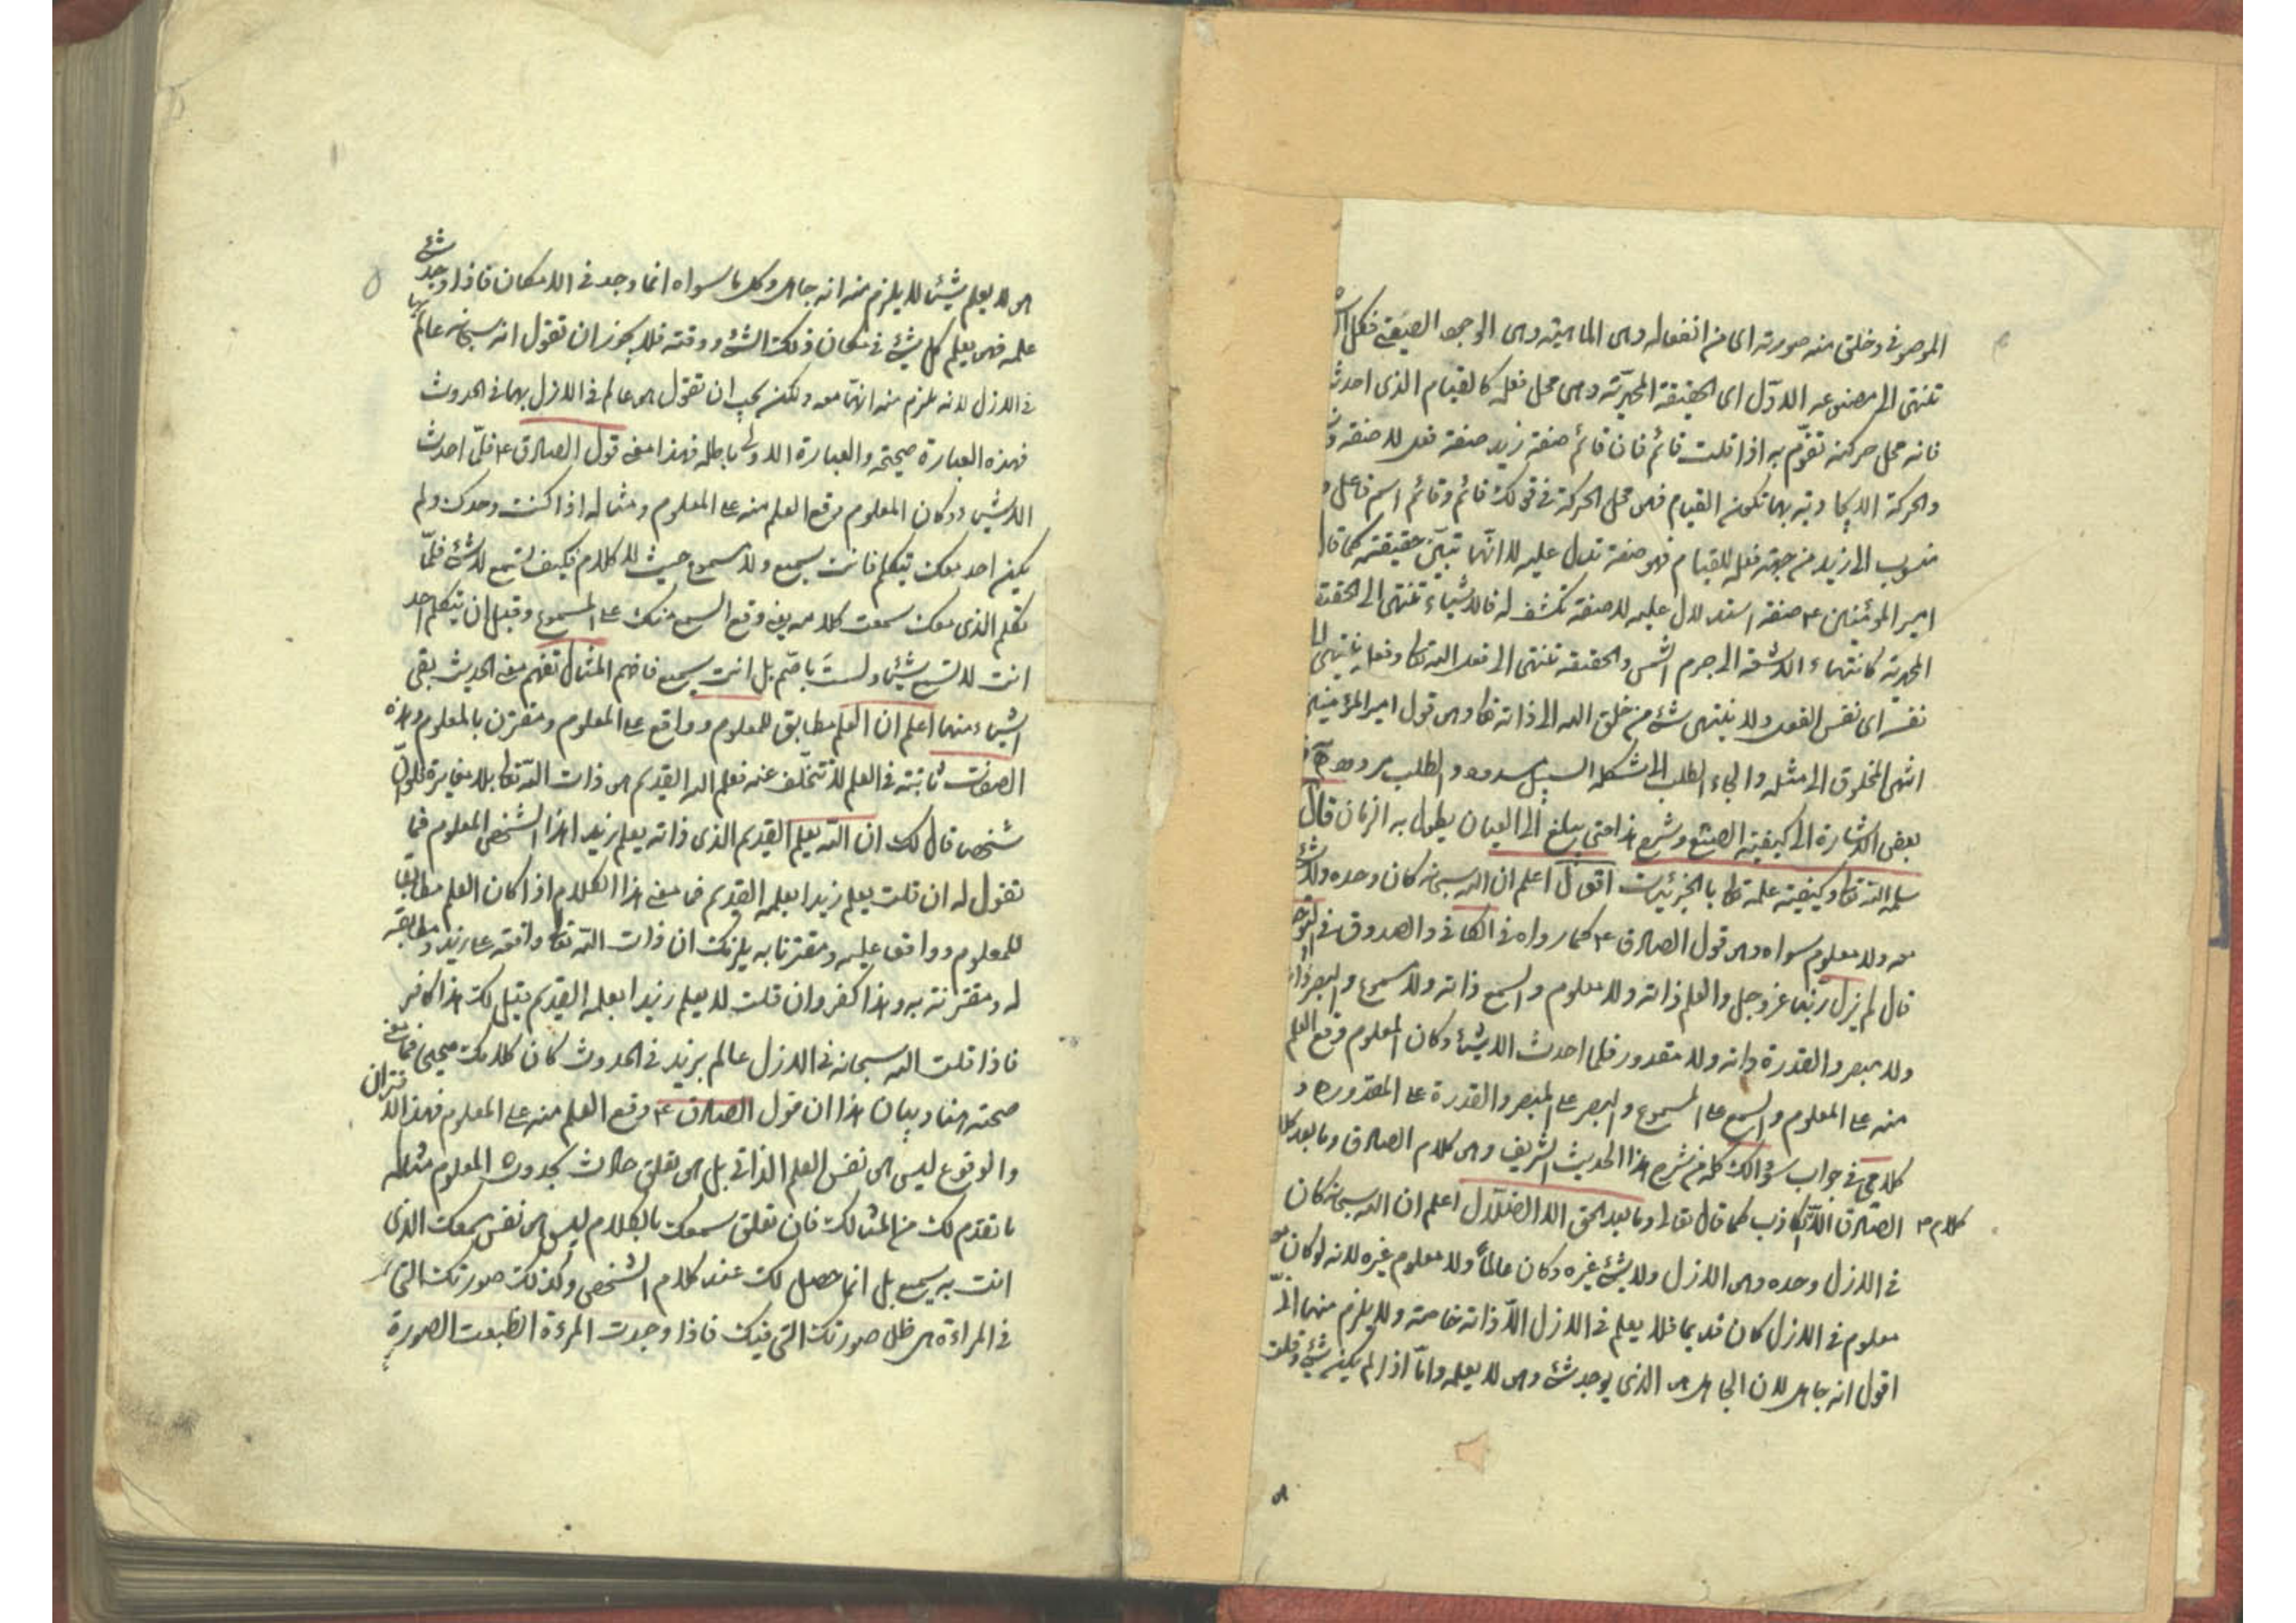 الموصوفى وخلق منه صورته اى من انفعاله وهى الماهية وهى الوجود الصيغى فكل
تنتهى الى مصنوعه الاول اى الحقيقة المحمدية وهى محل فعله كالقيام الذى احدث
فانه محل حركته تقوّم به اذا قلت قائم فان قائم صفة زيد صفة فعل لا صفة
والحركة الايجادية بها تكون القيام فهى محل الحركة فى قولك قائم وقائم اسم فاعل
منسوب الى زيد من جهة فعله للقيام فهو صفة تدل عليه لا انّها تبيّن حقيقته كما قال
امير المؤمنين ع صفة استدلال عليه لا صفة تكشف له فالاشياء تنتهى الى الحقيقة
المحمدية كانتهاء الاشعة الى جرم الشمس والحقيقة تنتهى الى فعل الله تعا وفعله ينتهى الى
نفسه اى نفس الفعل ولا ينتهى شئ من خلق الله الى ذاته تعا وهو قول امير المؤمنين
انتهى المخلوق الى مثله والجاء الطلب الى شكله السبيل مسدود والطلب مردود
بعض الاشارة الى كيفية الصنع وشرح هذا حتى يبلغ الى العيان يطول به الزمان قال
سلمه الله تعا وكيفية علمه تعا بالجزئيات اقول اعلم ان الله سبحانه كان وحده ولا شئ
معه ولا معلوم سواه وهو قول الصادق ع كما رواه فى الكافى والصدوق فى التوحيد
قال لم يزل ربنا عز وجل والعلم ذاته ولا معلوم والسمع ذاته ولا مسموع والبصر ذاته
ولا مبصر والقدرة ذاته ولا مقدور فلما احدث الاشياء وكان المعلوم وقع العلم
منه على المعلوم والسمع على المسموع والبصر على المبصر والقدرة على المقدور
كلامى فى جواب سؤالك كله من شرح هذا الحديث الشريف وهو كلام الصادق وما بعد كلام
الصادق الا الكاذب كما قال تعالى وما بعد الحق الا الضلال اعلم ان الله سبحانه كان
كلام م
فى الازل وحده وهو الازل ولا شئ غيره وكان عالماً ولا معلوم غيره لانه لو كان معه
معلوم فى الازل كان قديما فلا يعلم فى الازل الا ذاته خاصة ولا يلزم منها
اقول انه جاهل لان الجاهل هو الذى يوجد شئ وهو لا يعلمه وامّا اذا لم يكن شئ وقلت
هو لا يعلم شيئا لا يلزم منه انه جاهل وكل ما سواه انما وجد فى الامكان فاذا وجد شئ
علمه فهو يعلم كل شئ فى مكان ذلك الشئ ووقته فلا يجوز ان تقول انه سبحانه عالم بها
فى الازل لانه يلزم منه انّها معه ولكنه يجب ان تقول هو عالم فى الازل بها فى الحدوث
فهذه العبارة صحيحة والعبارة الاولى باطله فهذا معنى قول الصادق ع فلمّا احدث
الاشياء وكان المعلوم وقع العلم منه على المعلوم ومثاله اذا كنت وحدك ولم
يكن احد معك يتكلم فانت سميع ولا مسموع حيث لا كلام فكيف تسمع لا شئ فلمّا
تكلم الذى معك سمعت كلامه يعنى وقع السمع منك على المسموع وقبل ان يتكلم احد
انت لا تسمع شيئا ولستَ باصّم بل انت سميع فافهم المثال تفهم معنى الحديث بقى
اشياء منها اعلم ان العلم مطابق للمعلوم وواقع على المعلوم ومقترن بالمعلوم وهذه
الصفات ثابتة فى العلم لا تتخلّف عنه فعلم الله القديم هو ذات الله تعا بلا مغايرة فلو انّ
شخصا قال لك ان الله يعلم القديم الذى ذاته يعلم زيد اهذا الشخص المعلوم فما
تقول له ان قلت يعلم زيدا بعلمه القديم فما معنى هذا الكلام اذا كان العلم مطابقا
للمعلوم وواقعا عليه ومقترنا به يلزمك ان ذات الله تعا واقعة على زيد ومطابقة
له ومقترنة به وهذا كفر وان قلت لا يعلم زيدا بعلمه القديم يقيل لك هذا كافر
فاذا قلت الله سبحانه فى الازل عالم بزيد فى الحدوث كان كلامك صحيحا فما معنى
صحته هنا وبيان هذا ان قول الصادق ع وقع العلم منه على المعلوم فهذا الاقتران
والوقوع ليس هو نفس العلم الذاتى بل هو تعلق حادث بحدوث المعلوم مثاله
ما تقدم لك من المثالك فان تعلق سمعك بالكلام ليس هو نفس سمعك الذى
انت به سميع بل انما حصل لك عند كلام الشخص وكذلك صورتك التى
فى المراءة هى ظل صورتك التى فيك فاذا وجدت المرءة انطبعت الصورة